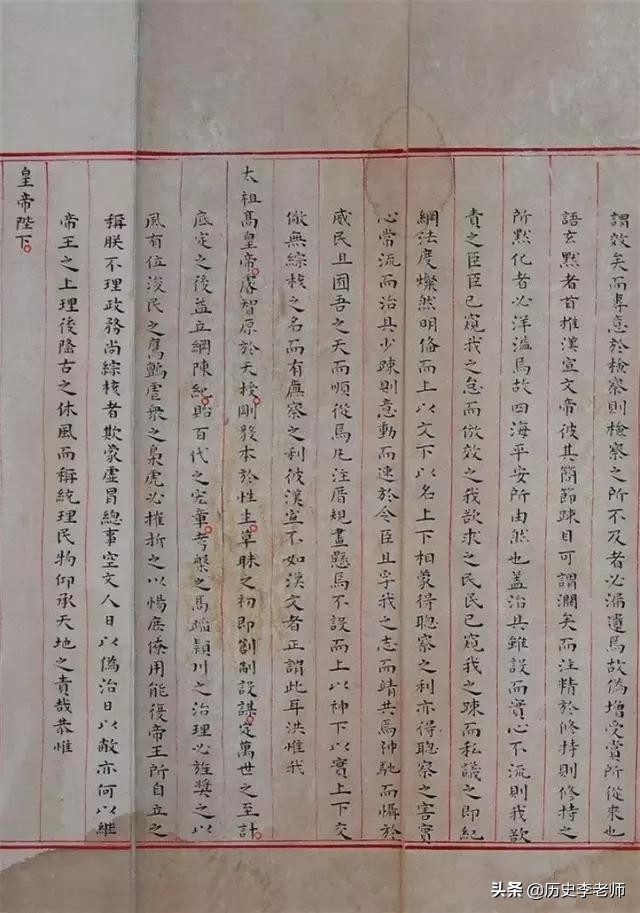 謂效矣而專意於檢察則檢察之所不及者必漏遺焉故偽增受賞所從來也
語玄默者首推漢宣文帝彼其簡節疎目可謂濶矣而注精於修持則修持之
所默化者必洋溢焉故四海平安所由然也蓋治具雖設而實心不流則我欲
責之臣臣已窺我之怠而倣效之我欲求之民民已窺我之疎而私議之即紀
綱法度燦然明俻而上以文下以名上下相蒙得聰察之利亦得聰察之害實
心常流而治具少疎則意動而速於令臣且孚我之志而靖共焉神馳而懾於
威民且囿吾之天而順從焉凡注厝規畫懸焉不設而上以神下以實上下交
儆無綜核之名而有廉察之利彼漢宣不如漢文者正謂此耳洪惟我
太祖高皇帝睿智原於天授剛毅本於性生草昧之初即創制設謀定萬世之至計
底定之後益立綱陳紀貽百代之宏章考槃之馬蹈潁川之治理必旌獎之以
風有位浚民之鷹鸇虐衆之梟虎必摧折之以惕庶僚用能復帝王所自立之
稱朕不理政務尚綜核者欺蒙虛冒總事空文人日以偽治日以敝亦何以継
帝王之上理後隆古之休風而稱統理民物仰承天地之責哉恭惟
皇帝陛下
头条 @历史李老师